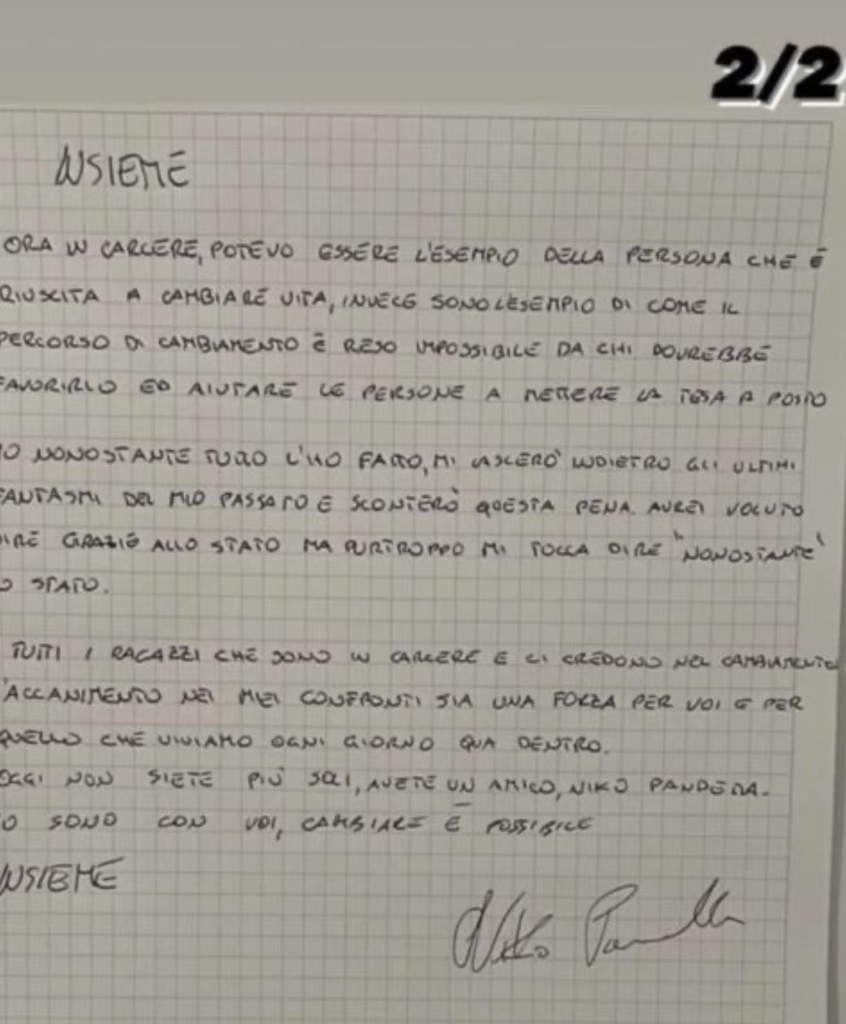 2/2
INSIEME
ORA IN CARCERE, POTEVO ESSERE L'ESEMPIO DELLA PERSONA CHE È
RIUSCITA A CAMBIARE VITA, INVECE SONO L'ESEMPIO DI COME IL
PERCORSO DI CAMBIAMENTO È RESO IMPOSSIBILE DA CHI DOVREBBE
FAVORIRLO ED AIUTARE LE PERSONE A METTERE LA TESA A POSTO
IO NONOSTANTE TUTTO L'HO FATTO, MI LASCERÒ INDIETRO GLI ULTIMI
FANTASMI DEL MIO PASSATO E SCONTERÒ QUESTA PENA. AUREI VOLUTO
DIRE GRAZIE ALLO STATO MA PURTROPPO MI TOCCA DIRE "NONOSTANTE"
LO STATO.
TUTTI I RAGAZZI CHE SONO IN CARCERE E CI CREDONO NEL CAMBIAMENTO
L'ACCANIMENTO NEI MIEI CONFRONTI SIA UNA FORZA PER VOI E PER
QUELLO CHE VIVIAMO OGNI GIORNO QUA DENTRO.
OGGI NON SIETE PIÙ SOLI, AVETE UN AMICO, NIKO PANDETTA.
IO SONO CON VOI, CAMBIARE È POSSIBILE
INSIEME